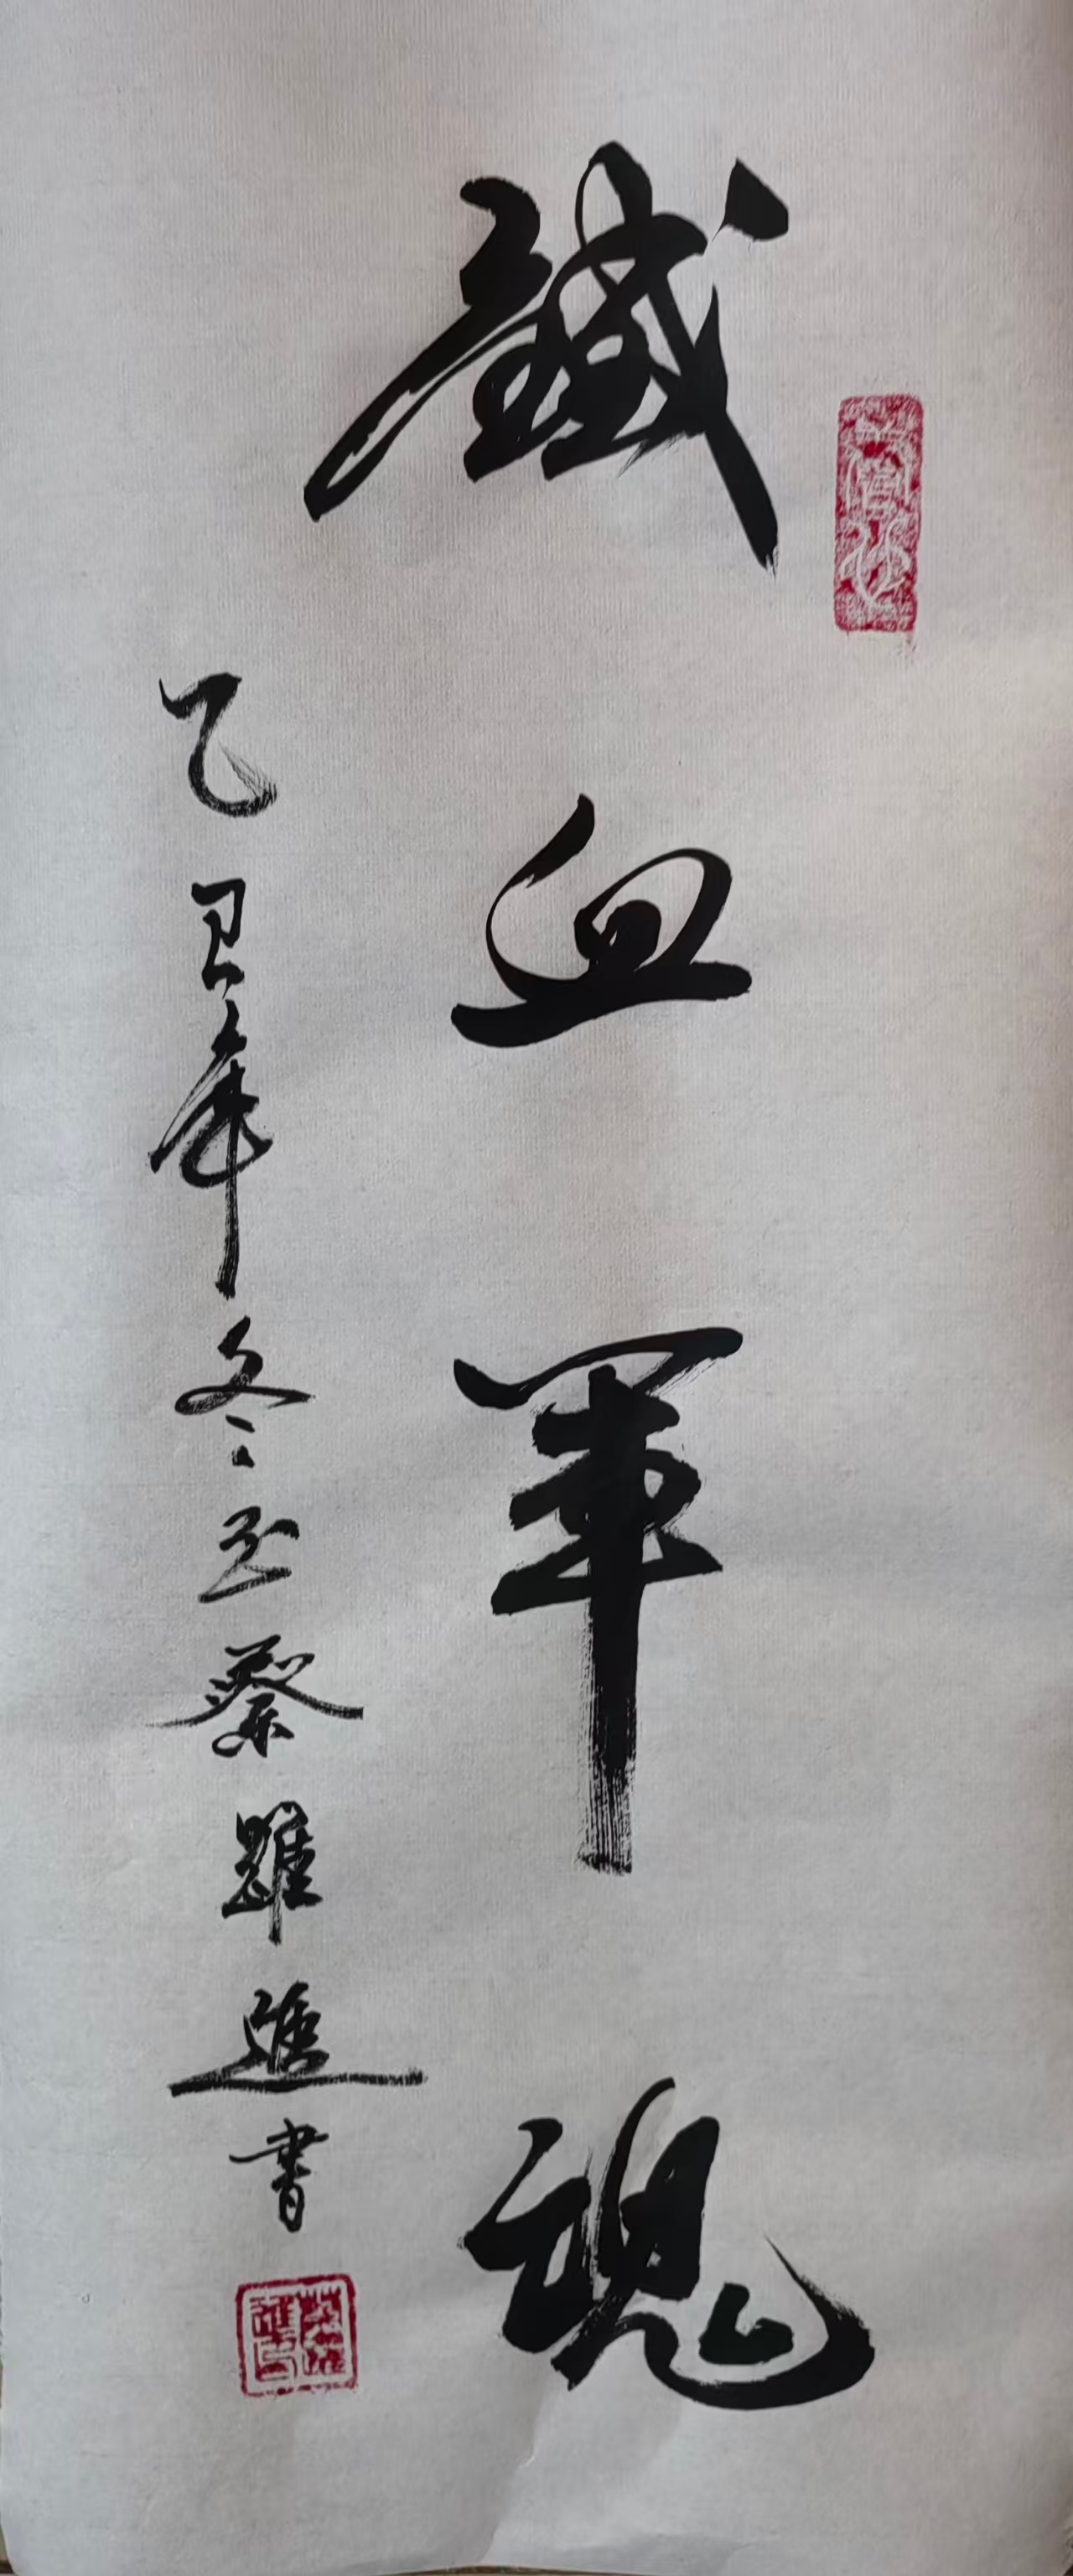 鐵血軍魂
乙巳年冬至蔡雖進書